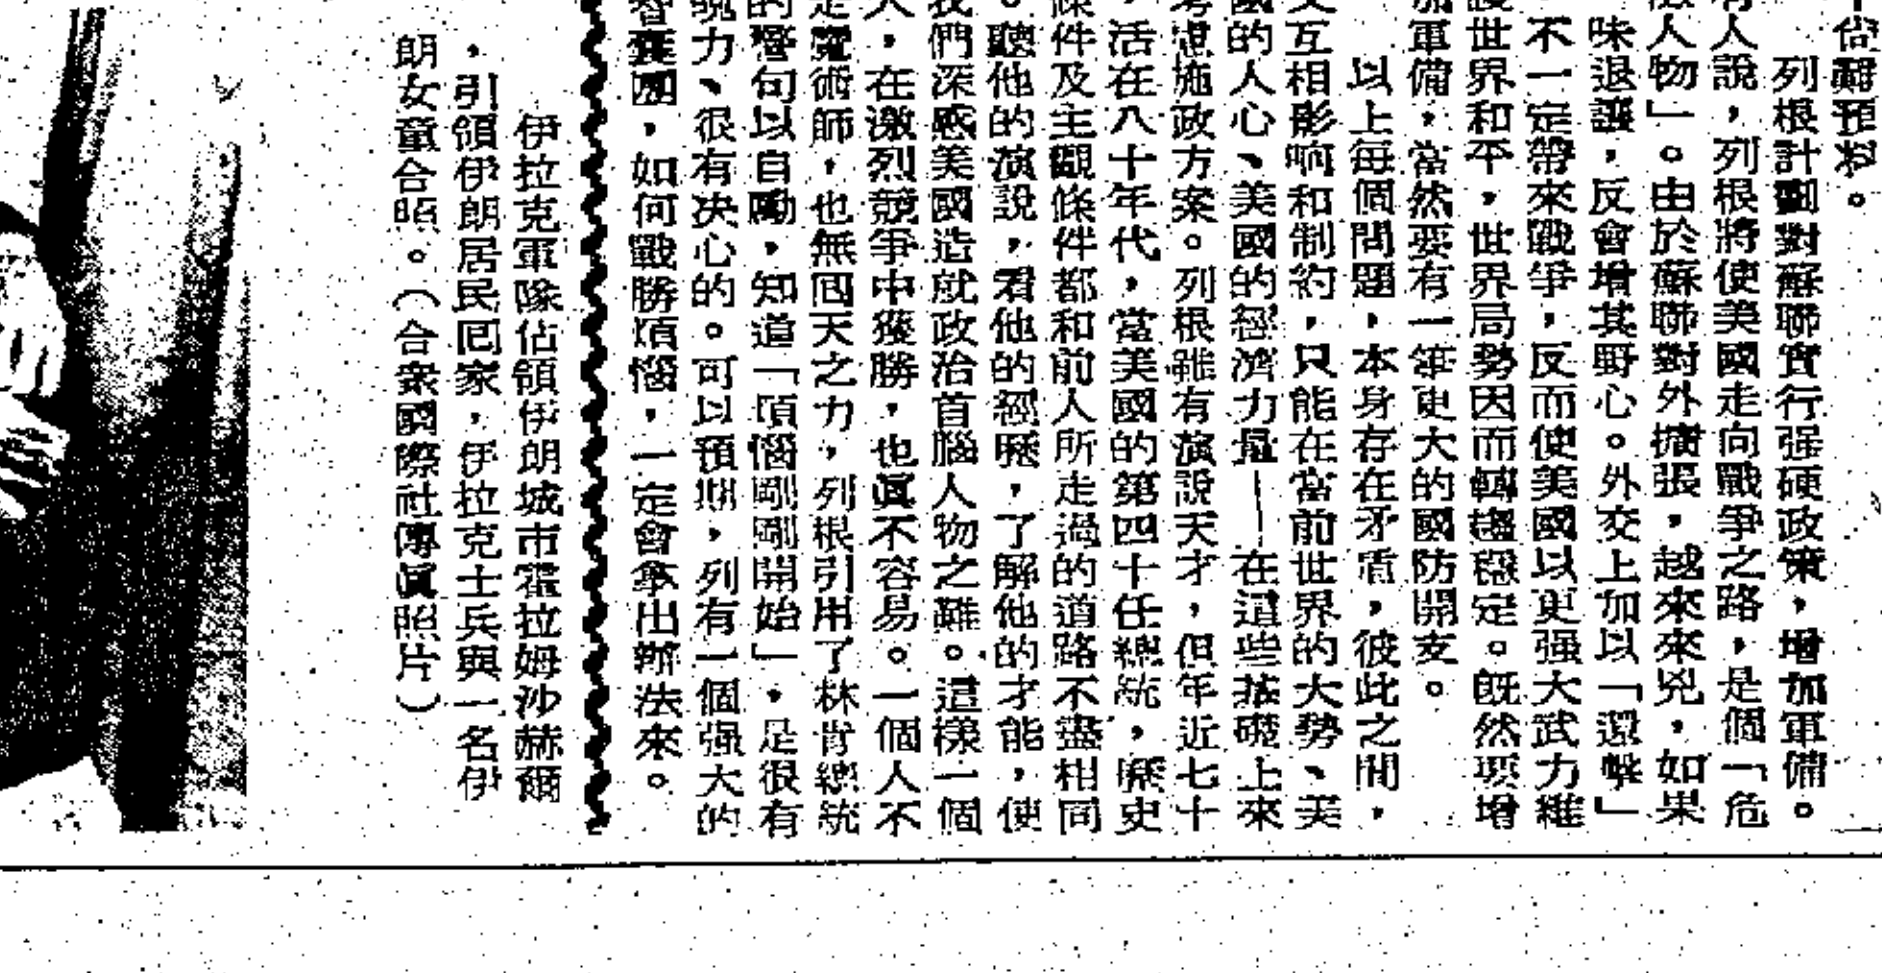 尙難預料。
列根計劃對蘇聯實行强硬政策，增加軍備。
有人說，列根將使美國走向戰爭之路，是個「危
險人物」。由於蘇聯對外擴張，越來來兇，如果
味退讓，反會增其野心。外交上加以「還擊」
，不一定帶來戰爭，反而使美國以更强大武力維
護世界和平，世界局勢因而轉趨穩定。旣然要增
加軍備，當然要有一筆更大的國防開支。
以上每個問題，本身存在矛盾，彼此之間，
又互相影响和制約，只能在當前世界的大勢、美
國的人心、美國的經濟力量——在這些基礎上來
考慮施政方案。列根雖有演說天才，但年近七十
，活在八十年代，當美國的第四十任總統，歷史
條件及主觀條件都和前人所走過的道路不盡相同
。聽他的演說，看他的經歷，了解他的才能，使
我們深感美國造就政治首腦人物之難。這樣一個
人，在激烈競爭中獲勝，也眞不容易。一個人不
是魔術師，也無囘天之力，列根引用了林肯總統
的警句以自勵，知道「煩惱剛剛開始」，是很有
魄力、很有決心的。可以預期，列有一個强大的
智囊團，如何戰勝煩惱，一定會拿出辦法來。
伊拉克軍隊佔領伊朗城市霍拉姆沙赫爾
，引領伊朗居民囘家，伊拉克士兵與一名伊
朗女童合照。（合衆國際社傳眞照片）